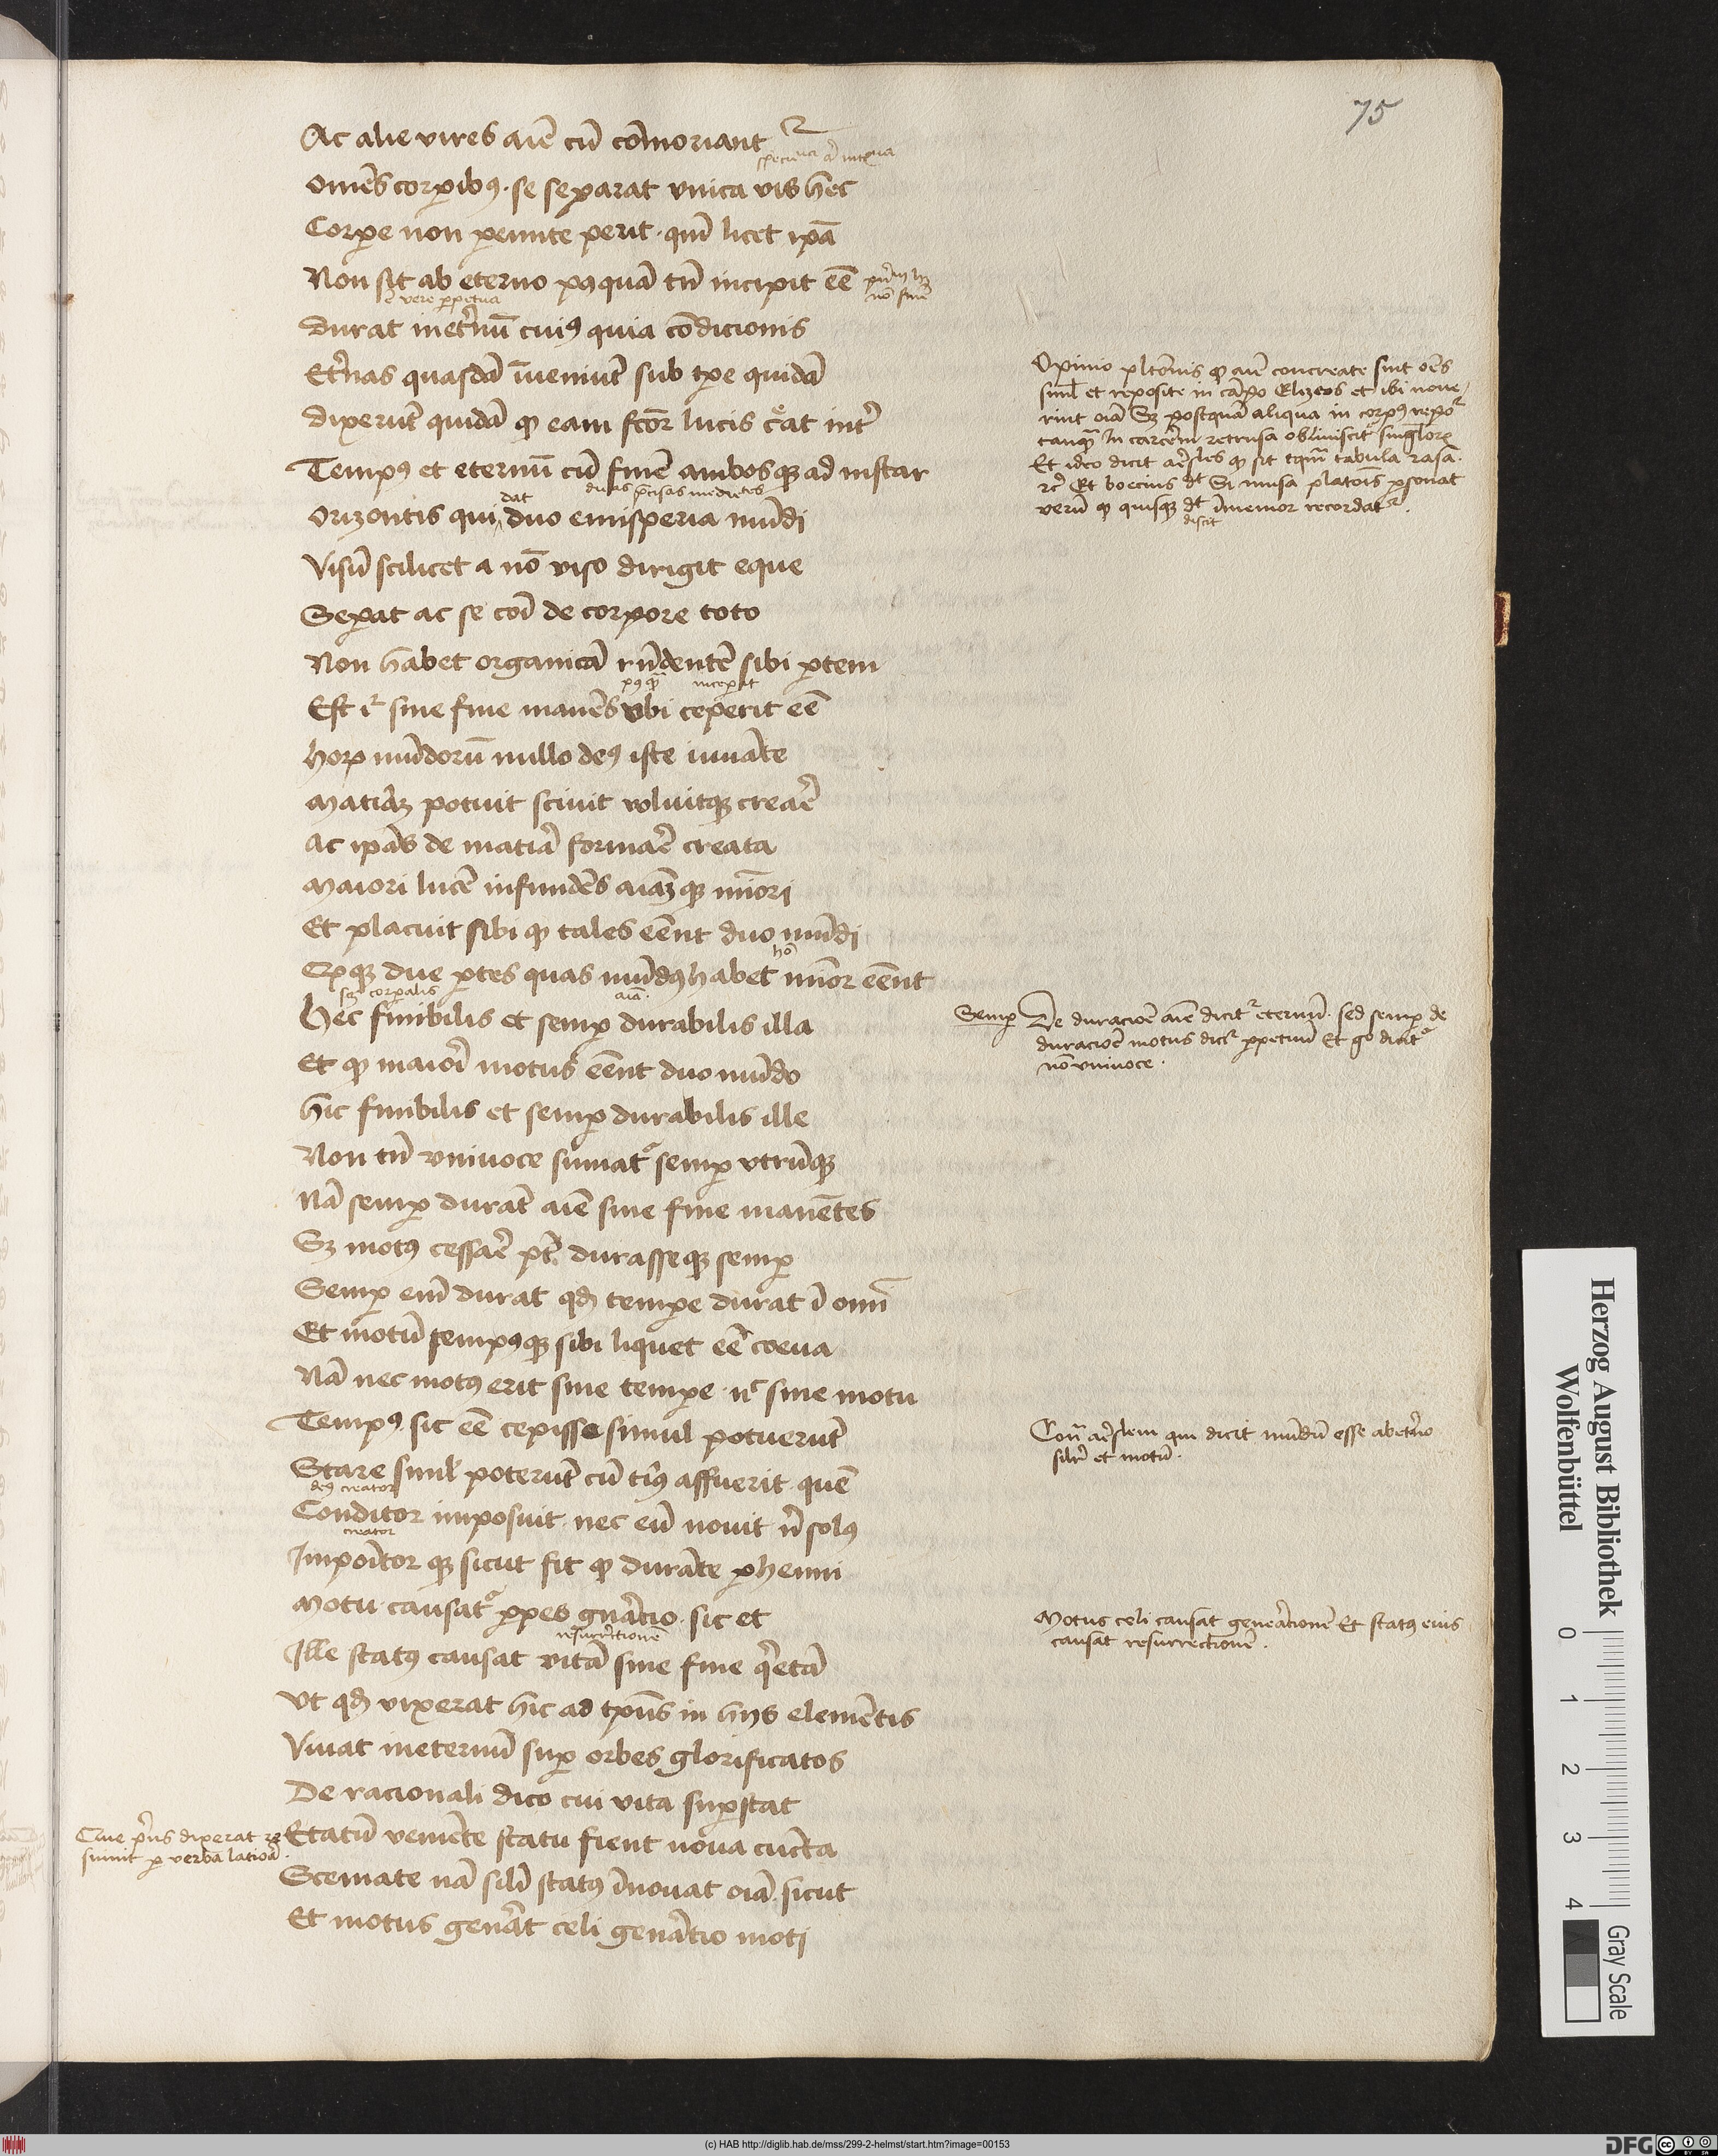 75
Ac alie vires aīe cū cōmoriant᷑
Om̄es corpib9 · se separat vnica vis hec
Corpe non peunte perit · qm̄ licet ipā
Non sit ab eterno p9quā tn̄ incipit eē
vere ppetua
durat inet'nū cui9 quia condicionis
Et'nas quasdā īueniūt sub tpe quidā
dixerūt quidā ꝙ eam fcōr lucis c̄at int'
Temp9 et eternū cū finē ambosqꝫ ad instar
Orizontis qui dat duo emisperia mūdi
Visū scilicet a nō viso dirigit eque
Sepat ac se coī de corpore toto
Non habet organicā rn̄dentē sibi ptem
p9 qᵃ incepat
Est i᷑ sine fine manēs vbi ceperit eē
Hoꝝ mūdorū nullo de9 iste iuuāte
Matiāꝫ potuit sciuit voluitqꝫ creaē
Ac ipās de matiā formaē creata
Maiori lucē infundēs aiāꝫqꝫ mīori
Et placuit sibi ꝙ tales eēnt duo mūdi
hō
Qꝙqꝫ due ptes quas mūd9 habet mīor eēnt
sꝫ corpalis aīa
Hec finibilis et semp durabilis illa
Et ꝙ maiorī motus eēnt duo mūdo
Hic finibilis et semp durabilis ille
Non tn̄ vniuoce sumat᷑ semp vtrūqꝫ
Nā semp durāt aīe sine fine manētes
Sꝫ mot9 cessaē pt̄ durasseqꝫ semp
Semp enī durat qd̄ tempe durat ī omī
Et motū temp9qꝫ sibi liquet eē coeua
Nā nec mot9 erit sine tempe · nᶜ sine motu
Temp9 sic eē cepisse simul potuerūt
Stare simˡ poterūt cū tīs affuerit quē
de9 creator
Conditor imposuit · nec eū nouit nˢ sol9
creator
Impoītor qꝫ sicut fit ꝙ durāte phenni
Motu causat᷑ ppes gnāᶜio · sic et
resurrectionē
Ille stat9 causat vitā sine fine q'etā
Vt qd̄ vixerat hic ad tp̄us in hijs elemētis
Viuat ineternū sup orbes glorificatos
De racionali dico cui vita supstat
Etatū veniēte statu fient noua cūcta
Scemate nā silī stat9 īnouat oīa · sicut
Et motus genāt celi genāᶜio moti
Opinio platonis ꝙ aīe concreate sint oēs
simˡ et reposite in cāpo Elizeos et ibi noue/
rint oīa Sꝫ postquā aliqua in corp9 repo᷑
tanqᵃ in carcerē retrusa obliuiscit᷑ singˡoꝝ
Et ideo dicit ar̄sles ꝙ sit tqᵃ tabula rasa ·
ꝛc̄ Et boecius dt̄ Si musa platoīs psonat
verū ꝙ quisqꝫ dt̄ īmemor recordat᷑ ·
discit
Semp De duracioē aīe dicit᷑ eternū · sed semp de
duracioē motus dict᷑ ppetuū Et gᵒ dicit᷑
nō vniuoce ·
Conᵃ ar̄slem qui dicit mūdū esse abet'no
silr̄ et motū ·
Motus celi causat geneᵃcionē Et stat9 eius
causat resurrectionē ·
Que pri9 dixerat re
sumit p verba latioā ·
Herzog August Bibliothek
Wolfenbüttel
0 1 2 3 4
Gray Scale
(c) HAB http://diglib.hab.de/mss/299-2-helmst/start.htm?image=00153
DFG